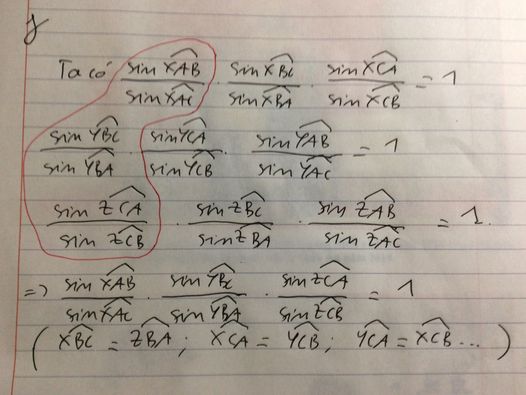 Ta có sin XAB^/sin XAC^ · sin XBC^/sin XBA^ · sin XCA^/sin XCB^ = 1
sin YBC^/sin YBA^ · sin YCA^/sin YCB^ · sin YAB^/sin YAC^ = 1
sin ZCA^/sin ZCB^ · sin ZBC^/sin ZBA^ · sin ZAB^/sin ZAC^ = 1.
=> sin XAB^/sin XAC^ · sin YBC^/sin YBA^ · sin ZCA^/sin ZCB^ = 1
( XBC^ = ZBA^ ; XCA^ = YCB^ ; YCA^ = XCB^ ... )